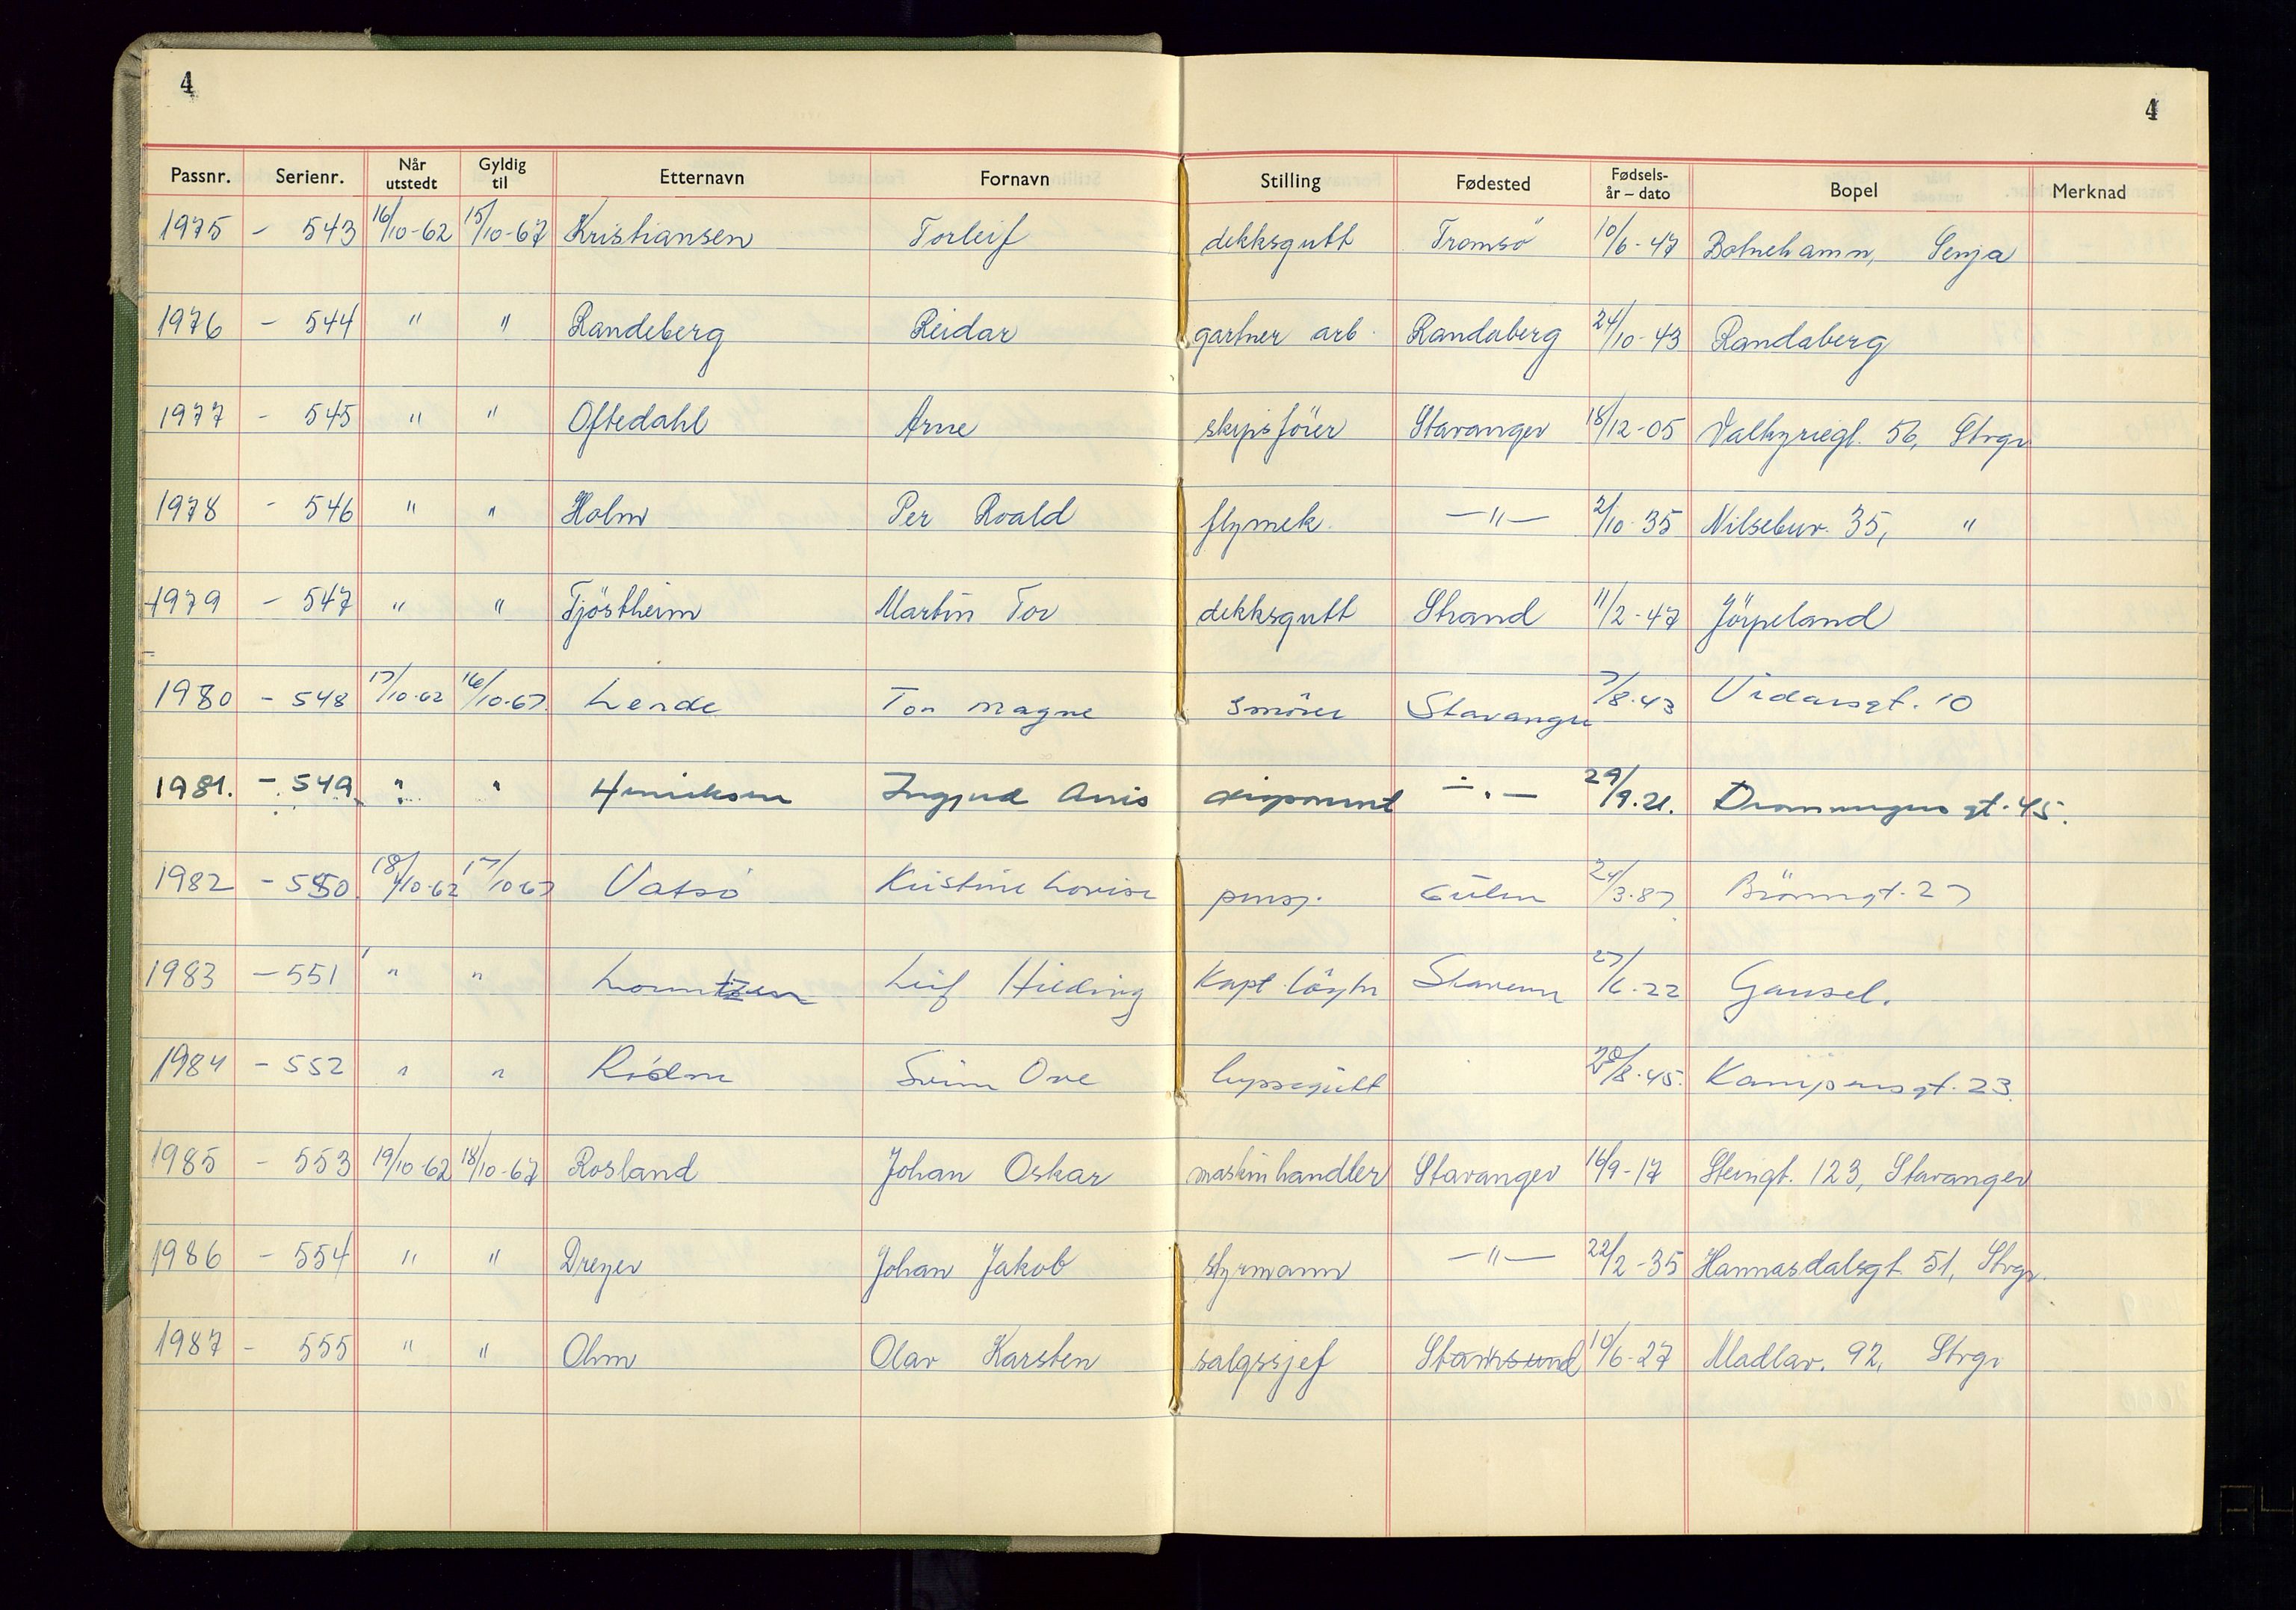 4 4
Passnr. Serienr. Når utstedt Gyldig til Etternavn Fornavn Stilling Fødested Fødsels- år – dato Bopel Merknad
1975 - 543 16/10-62 15/10-67 Kristiansen Torleif dekksgutt Tromsö 10/6-47 Botnehamn, Senja
1976 - 544 " " Randeberg Reidar gartner arb. Randaberg 24/10-43 Randaberg
1977 - 545 " " Oftedahl Arne skipsförer Stavanger 18/12-05 Valkyriegt. 56, Stvgr
1978 - 546 " " Holm Per Roald flymek. —"— 2/10-35 Nilsebuv. 35, "
1979 - 547 " " Tjöstheim Martin Tor dekksgutt Strand 11/2-47 Jörpeland
1980 - 548 17/10-62 16/10-67. Lende Tor Magne smörer Stavanger 7/8-43 Vidarsgt. 10
1981. - 549 " " Henriksen Anis disponent —"— 29/9.21. Dronningensgt. 45.
1982 - 550. 18/10-62 17/10-67 Vatsö Kristine Lovise pensj. Gulen 24/3.87. Brönngt. 27
1983 - 551 " " Leif Hilding Kapt. 27/6-22 Gausel.
1984 - 552 " " Svein Ove byssegutt 28/8.45. Kampensgt. 23.
1985 - 553 19/10-62 18/10-67 Rosland Johan Oskar maskinhandler Stavanger 16/9-17 Steingt. 123, Stavanger
1986 - 554 " " Dreyer Johan Jakob styrmann —"— 22/2-35 Hannasdalsgt. 51, Stvgr.
1987 - 555 " " Ohm Olav Karsten salgssjef Stamsund 10/6-27 Madlav. 92, Stvgr